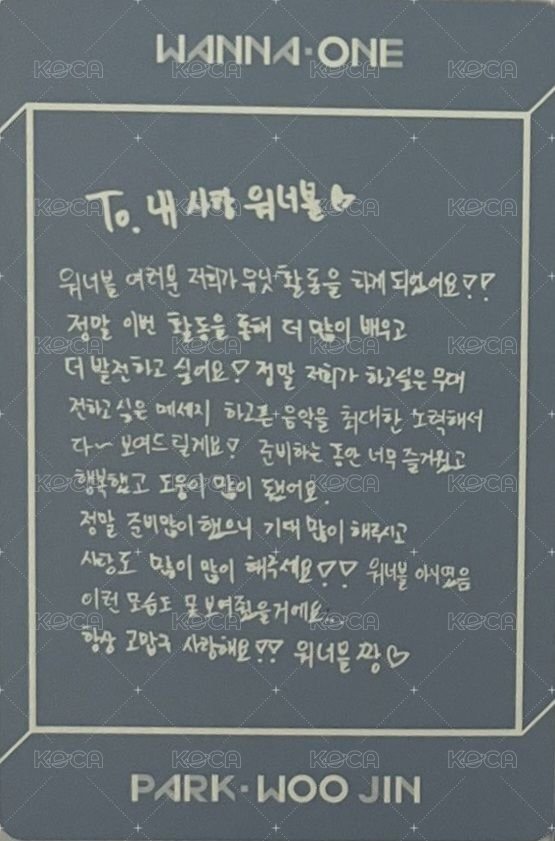 WANNA·ONE
To. 내 사랑 워너블♡
워너블 여러분 저희가 유닛 활동을 하게 되었어요♡♡
정말 이번 활동을 통해 더 많이 배우고
더 발전하고 싶어요! 정말 저희가 하고싶은 무대
전하고 싶은 메세지 하고픈 음악을 최대한 노력해서
다~ 보여드릴게요! 준비하는 동안 너무 즐거웠고
행복했고 도움이 많이 됐어요.
정말 준비많이 했으니 기대 많이 해주시고
사랑도 많이 많이 해주세요♡♡ 워너블 아니였음
이런 모습도 못 보여줬을거에요...
항상 고맙구 사랑해요♡♡ 워너블 짱♡
PARK·WOO JIN
KOCA